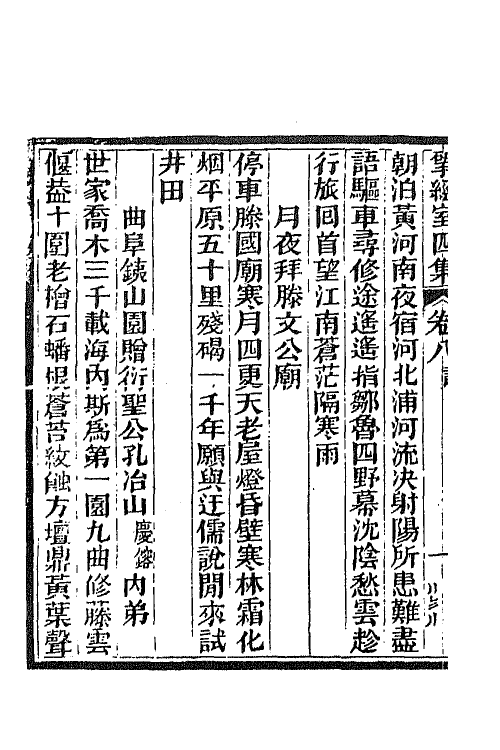 揅經室四集 卷八
朝泊黃河南夜宿河北浦河流決射陽所患難盡
語驅車尋修途遙遙指鄒魯四野幕沈陰愁雲趁
行旅回首望江南蒼茫隔寒雨
月夜拜滕文公廟
停車滕國廟寒月四更天老屋燈昏壁寒林霜化
烟平原五十里殘碣一千年願與迂儒說閒來試
井田
曲阜鐵山園贈衍聖公孔冶山慶鎔內弟
世家喬木三千載海內斯爲第一園九曲修藤雲
偃蓋十圍老檜石蟠根蒼苔紋蝕方壇鼎黃葉聲